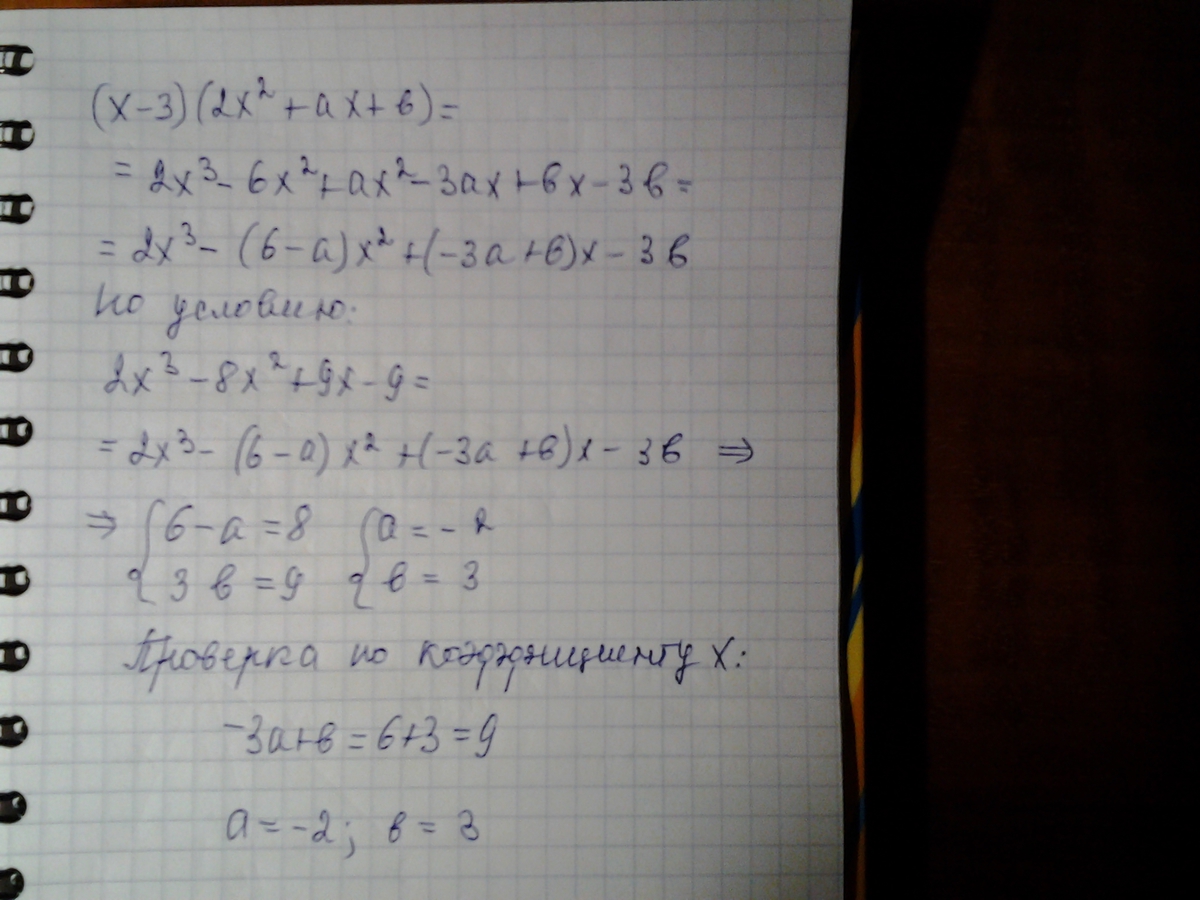 (x-3)(2x²+ax+b)=
=2x³-6x²+ax²-3ax+bx-3b=
=2x³-(6-a)x²+(-3a+b)x-3b
По условию:
2x³-8x²+9x-9=
=2x³-(6-a)x²+(-3a+b)x-3b ⇒
⇒ {6-a=8 {a=-2
{3b=9 {b=3
Проверка по коэффициенту x:
-3a+b=6+3=9
a=-2; b=3